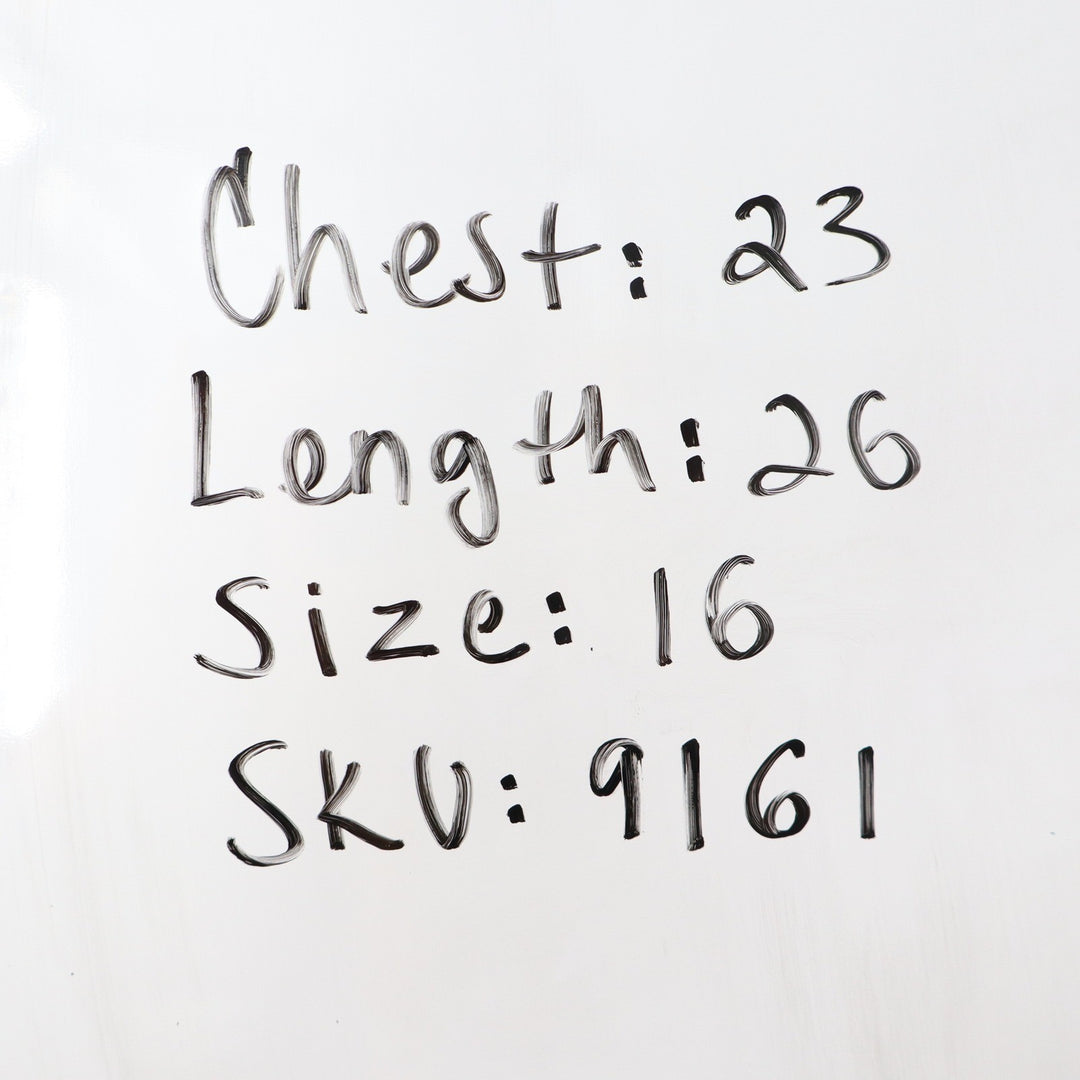 Chest: 23
Length: 26
Size: 16
SKU: 9161